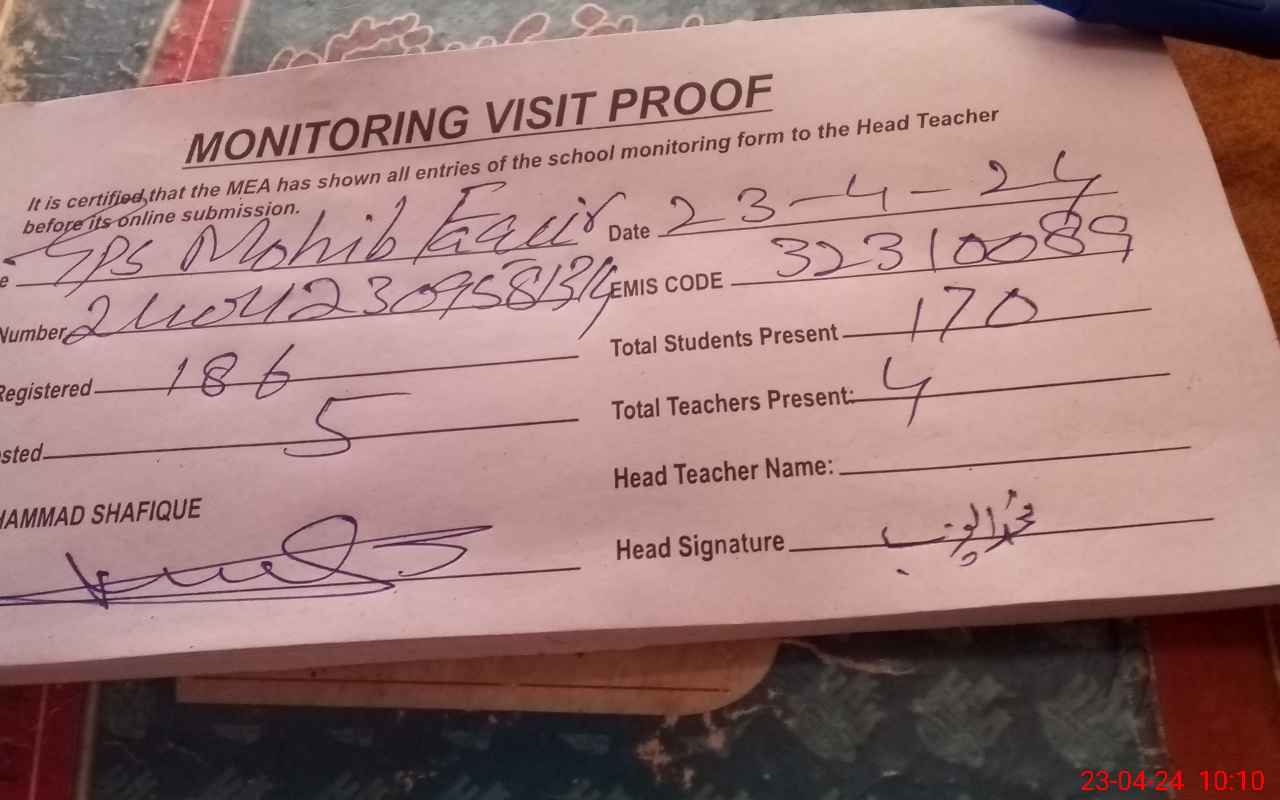 MONITORING VISIT PROOF
It is certified, that the MEA has shown all entries of the school monitoring form to the Head Teacher
before its online submission.
e GPS Mohib Faqir Date 23-4-24
Number EMIS CODE 32310089
Registered 186 Total Students Present 170
sted 5 Total Teachers Present: 4
Head Teacher Name:
HAMMAD SHAFIQUE
Head Signature
23-04-24 10:10